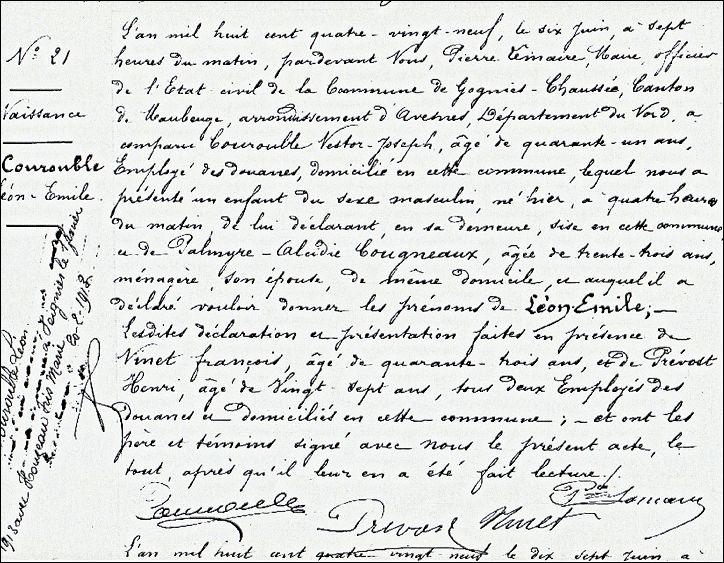 N° 21
Naissance
Courouble
Léon-Emile.
L'an mil huit cent quatre-vingt-neuf, le six Juin, à sept
heures du matin, pardevant Nous, Pierre Lemaire Maire, officier
de l'Etat-civil de la Commune de Gognies-Chaussée, Canton
de Maubeuge, arrondissement d'Avesnes, Département du Nord, a
comparu Courouble Nestor-Joseph, âgé de quarante-un ans,
Employé des douanes, domicilié en cette commune, lequel nous a
présenté un enfant du sexe masculin, né hier, à quatre heures
du matin, de lui déclarant, en sa demeure, sise en cette commune
et de Palmyre-Alcidie Cougneaux, âgée de trente-trois ans,
ménagère, son épouse, de même domicile, et auquel il a
déclaré vouloir donner les prénoms de Léon-Emile;—
Lesdites déclaration et présentation faites en présence de
Ninet françois, âgé de quarante-trois ans, et de Prévost
Henri, âgé de Vingt sept ans, tous deux Employés des
douanes et domiciliés en cette commune; — et ont les
père et témoins signé avec nous le présent acte, le
tout, après qu'il leur en a été fait lecture./.
Courouble
Prévost Ninet
L'an mil huit cent quatre-vingt-neuf le dix sept Juin à